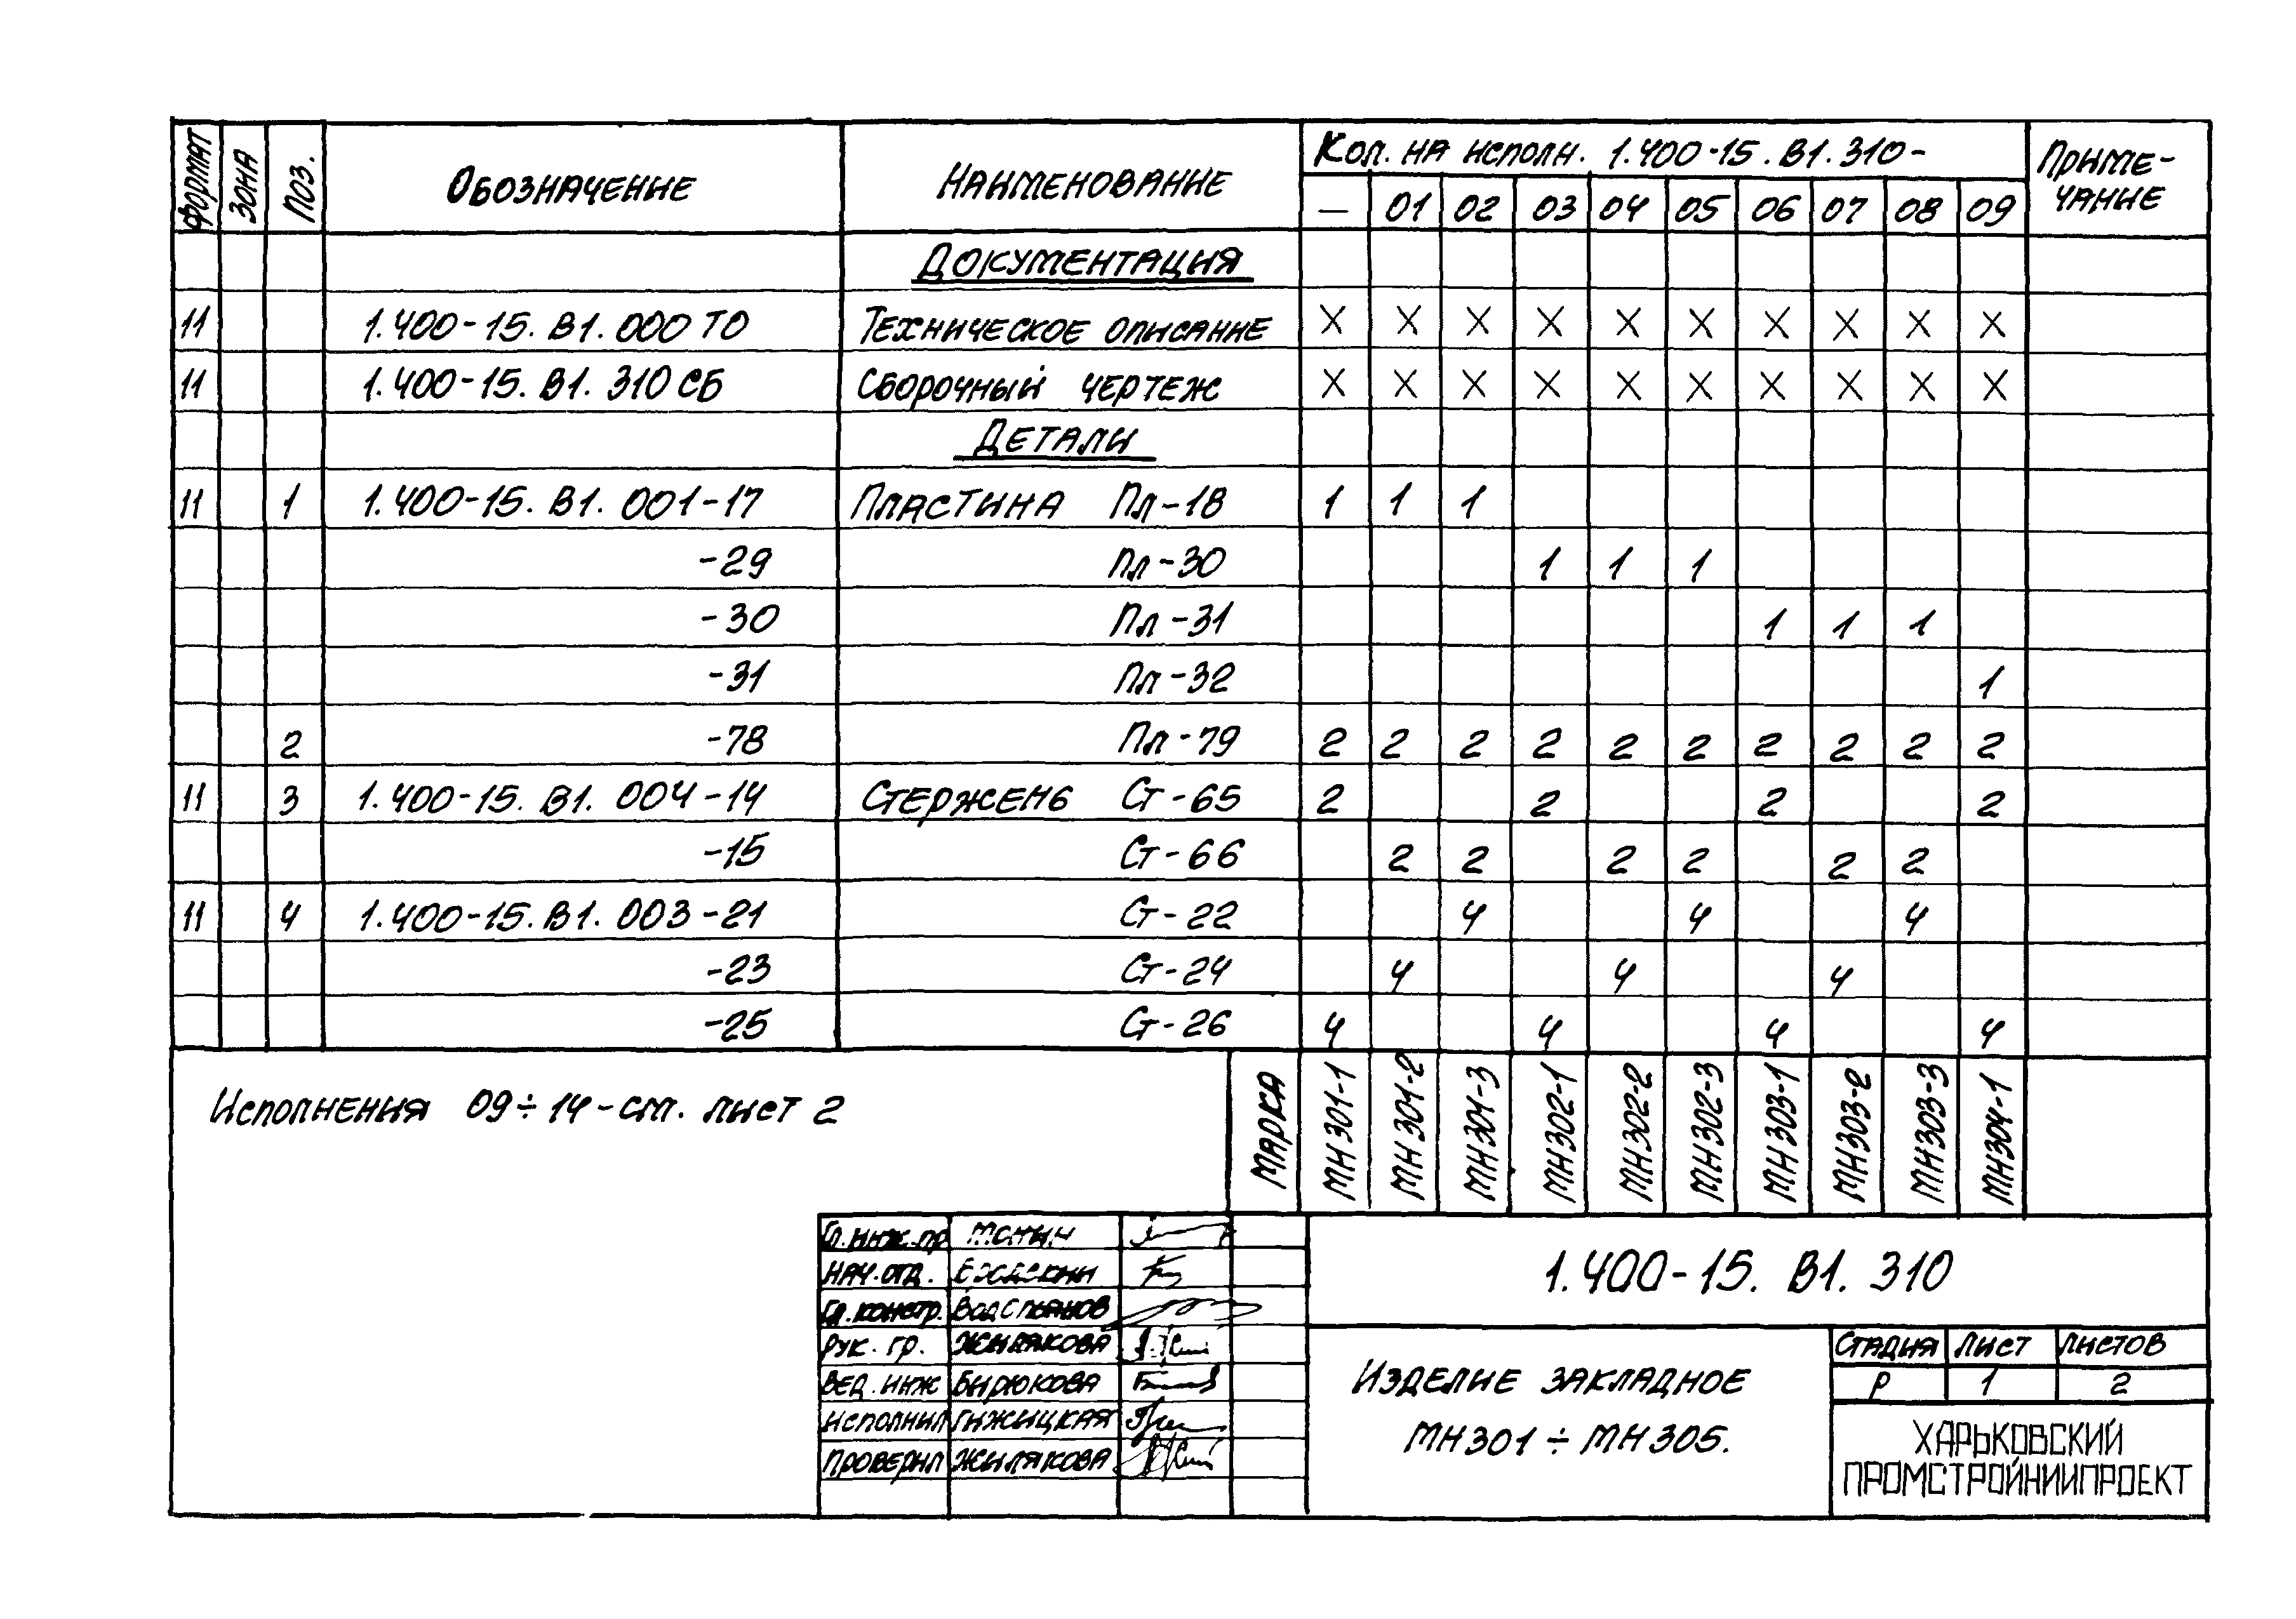 Формат Зона Поз. Обозначение Наименование Кол. на исполн. 1.400-15.В1.310- Приме-
чание
— 01 02 03 04 05 06 07 08 09
Документация
11 1.400-15.В1.000 ТО Техническое описание X X X X X X X X X X
11 1.400-15.В1.310 СБ Сборочный чертеж X X X X X X X X X X
Детали
11 1 1.400-15.В1.001-17 Пластина Пл-18 1 1 1
-29 Пл-30 1 1 1
-30 Пл-31 1 1 1
-31 Пл-32 1
2 -78 Пл-79 2 2 2 2 2 2 2 2 2 2
11 3 1.400-15.В1.004-14 Стержень Ст-65 2 2 2 2
-15 Ст-66 2 2 2 2 2 2
11 4 1.400-15.В1.003-21 Ст-22 4 4 4
-23 Ст-24 4 4 4
-25 Ст-26 4 4 4 4
Марка МН301-1 МН301-2 МН301-3 МН302-1 МН302-2 МН302-3 МН303-1 МН303-2 МН303-3 МН304-1
Исполнения 09÷14-см. лист 2
Гл.инж.пр
Нач.отд.
Гл.констр.
Рук. гр. Жилякова
Вед.инж Бирюкова
Исполнил Гижицкая
Проверил Жилякова
1.400-15. В1. 310
Изделие закладное
МН301÷МН305.
Стадия Лист Листов
Р 1 2
ХАРЬКОВСКИЙ
ПРОМСТРОЙНИИПРОЕКТ